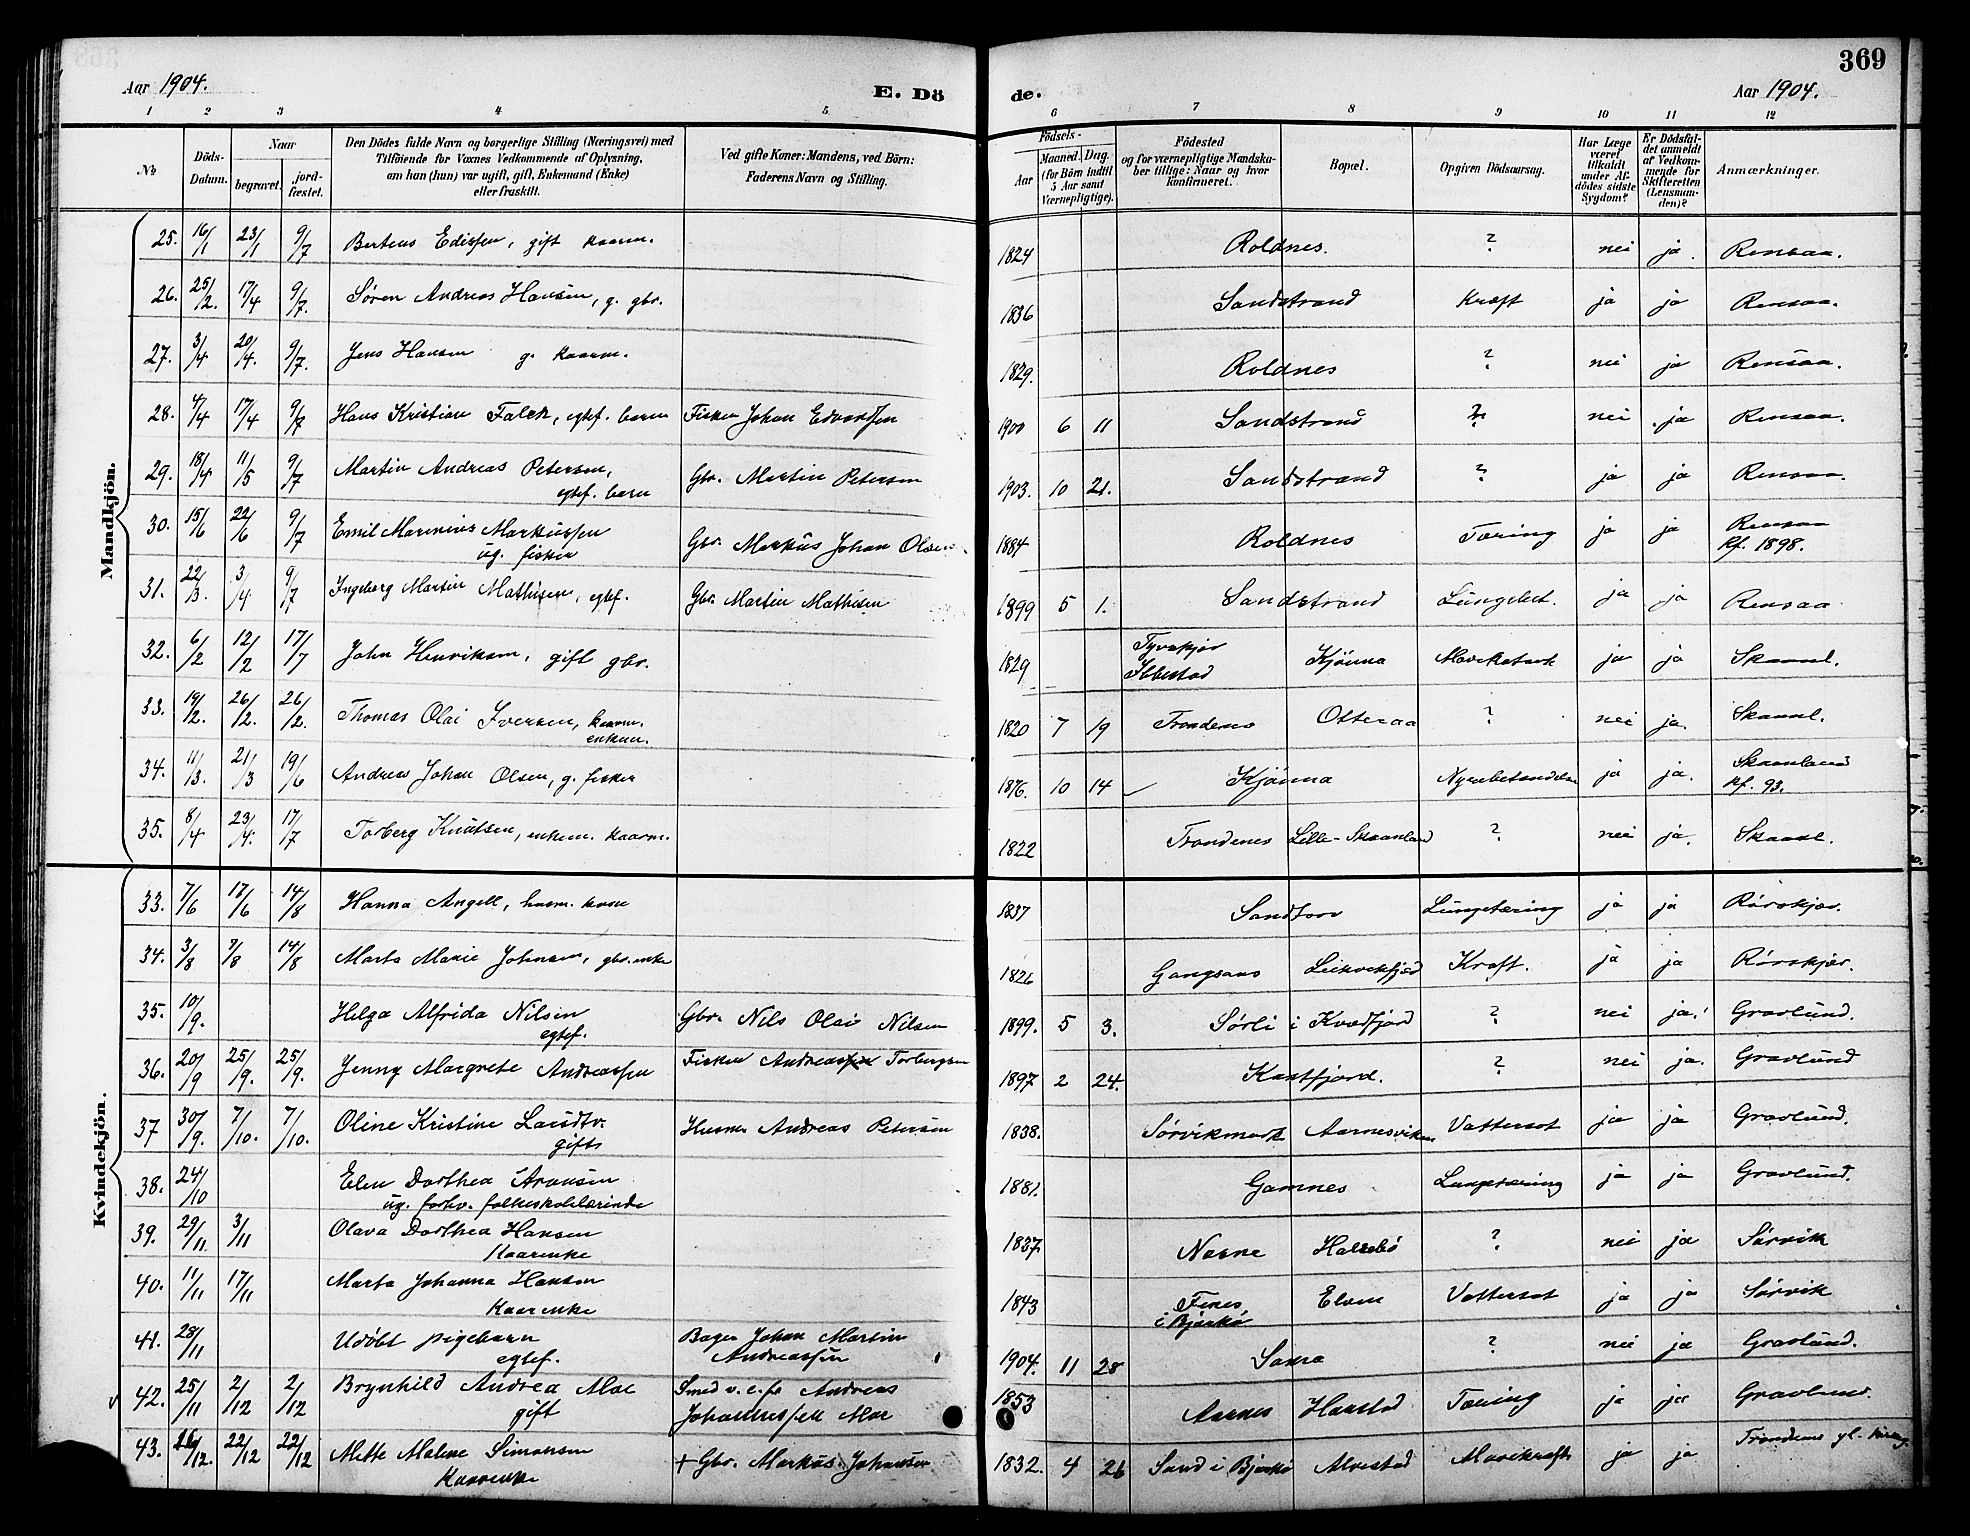 369
Aar 1904. E. Dö de. Aar 1904.
1 2 3 4 5 6 7 8 9 10 11 12
No
Döds-Datum.
Naar
begravet.
jord-fæstet.
Den Dödes fulde Navn og borgerlige Stilling (Næringsvei) med
Tilföiende for Voxnes Vedkommende af Oplysning,
om han (hun) var ugift, gift, Enkemand (Enke)
eller fraskilt.
Ved gifte Koner: Mandens, ved Börn:
Faderens Navn og Stilling.
Födsels-
Aar
Maaned. Dag.
(for Börn indtil 5 Aar samt Værnepligtige).
Födested
og for værnepligtige Mandska-
ber tillige: Naar og hvor
konfirmeret.
Bopæl.
Opgiven Dödsaarsag.
Har Læge været tilkaldt under Af-dödes sidste Sygdom?
Er Dödsfal-det anmeldt af Vedkom-mende for Skifteretten (Lensman-den)?
Anmærkninger.
Mandkjön.
25. 16/1 23/1 9/7 Berteus Edissen, gift kaarm. 1824 Roldnes. ? nei ja. Rensaa.
26. 25/2. 17/4 9/7. Søren Andreas Hansen, g. gbr. 1836 Sandstrand Kræft ja ja Rensaa.
27. 3/4 20/4. 9/7. Jens Hansen g. kaarm. 1829. Roldnes ? nei ja Rensaa.
28. 4/4 17/4 9/7 Hans Kristian Falck, egtef. barn Fisker Johan Edvardsen 1900 6 11 Sandstrand ? nei ja Rensaa.
29. 18/4 11/5 9/7 Martin Andreas Petersen,
egtef. barn Gbr. Martin Petersen 1903. 10 21. Sandstrand ? ja ja Rensaa.
30. 15/6 22/6 9/7 Emil Marenius Markussen
ug. fisker Gbr. Markus Johan Olsen. 1884 Roldnes Tæring ja ja Rensaa
Kf. 1898.
31. 22/3. 3/4 9/7 Ingeborg Martin Mathisen, egtef. Gbr. Martin Mathisen 1899 5 1. Sandstrand Lungebet. ja ja Rensaa
32. 6/2 12/2 17/7 John Henriksen, gift gbr. 1829 Ibbestad Kjönna ja ja Skaanl.
33. 19/2. 26/2. 26/2. Thomas Olai Iversen, kaarm.
enkem. 1820 7 19 Trondenes Otteraa ? nei ja. Skaanl.
34. 11/3. 21/3 19/6 Andreas Johan Olsen, g. fisker 1876. 10 14 Kjönna Nyrebetændelse ja ja. Skaanland
kf. 93.
35. 8/4 23/4. 17/7 Torberg Knutsen, enkem. kaarm. 1822 Trondenes Lille-Skaanland ? nei ja. Skaanl.
Kvindekjön.
33. 7/6 17/6 14/8 Hanna Angell, husm. kone 1837 Sandtorv Lungetæring ja ja Rörskjær.
34. 3/8 7/8 14/8 Marta Marie Johnsen, gbr. enke 1826 Gangsaas Kræft. ja ja Rörskjær.
35. 10/9. Helga Alfrida Nilsen
egtef. Gbr. Nils Olai Nilsen 1899. 5 3. Sörli i Kvædfjord ? nei ja. Gravlund.
36. 20/9 25/9. 25/9. Jenny Margrete Andreassen Fisker Andreas Torbergsen 1897 2 24. Kastfjord. ? nei ja. Gravlund
37 30/9. 7/10. 7/10. Oline Kristine Larsdtr.
gift Husm Andreas Petersen 1838. Sörvikmark Aarnesviken Vattersot ja ja Gravlund.
38. 24/10 Elen Dorthea Aronsen
ug. forhv. folkeskolelærinde 1881. Gamnes Lungetæring ja ja Gravlund.
39. 29/11. 3/11 Olava Dorthea Hansen
Kaarenke 1837 Nesne Halsebö ? nei ja Sörvik
40. 11/11 17/11 Marta Johanna Hansen
Kaarenke 1843 Fenes
i Bjarkö Elven Vattersot ja ja Sörvik
41. 28/11 Udöbt pigebarn
egtef. Bager Johan Martin
Andreassen 1904. 11 28 Sama ? nei ja Gravlund.
42. 25/11 2/12 2/12 Brynhild Andrea Moe
gift Smed Andreas
Johannessen Moe 1853 Aarnes Harstad Tæring ja ja Gravlund.
43. 16/12. 22/12 22/12 Mette Malene Simonsen
Kaarenke + Gbr. Markus Johansen 1832. 4 26 Sand i Bjarkö Alvestad Mavekræft ja ja Trondenes gl.